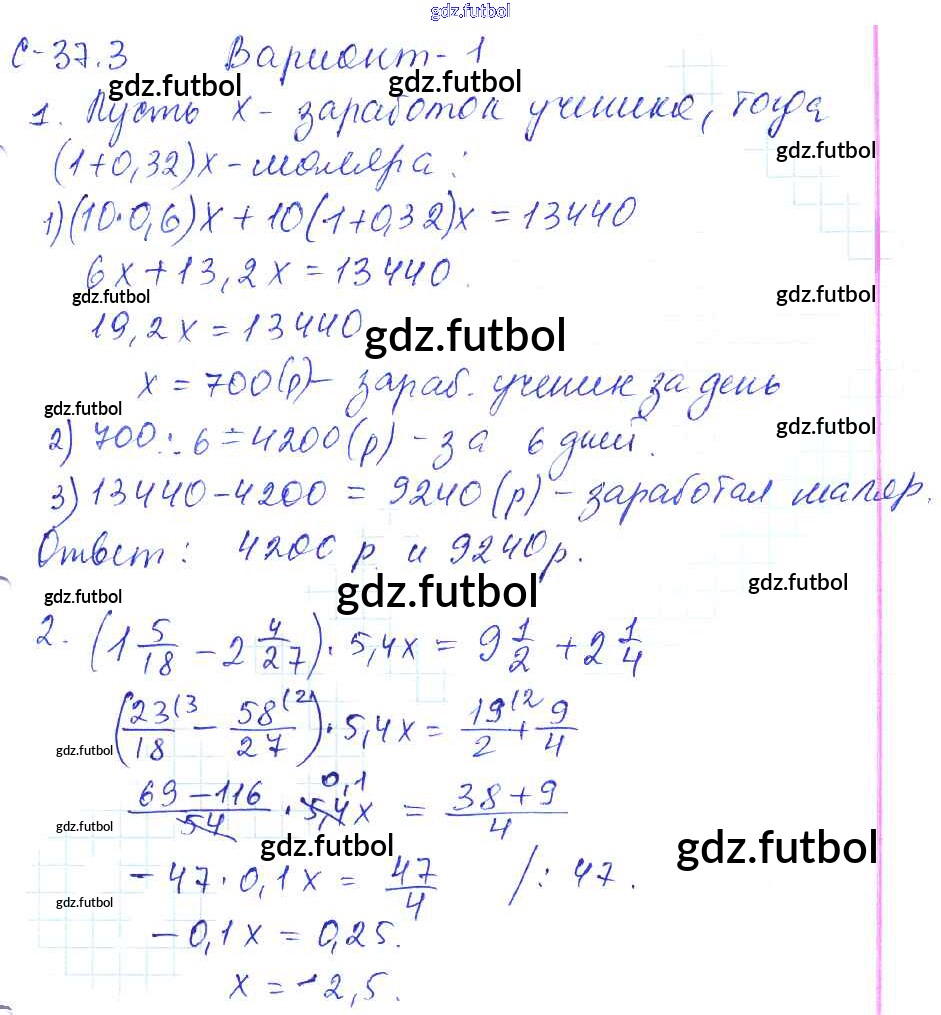 gdz.futbol
С-37.3 Вариант-1
gdz.futbol gdz.futbol
1. Пусть x - заработок ученика, тогда
(1+0,32)x - маляра:
gdz.futbol
1) (10·0,6)x + 10(1+0,32)x = 13440
6x + 13,2x = 13440.
gdz.futbol gdz.futbol
19,2x = 13440
gdz.futbol
x = 700(р) - зараб. ученик за день
gdz.futbol gdz.futbol
2) 700 : 6 = 4200(р) - за 6 дней.
3) 13440 - 4200 = 9240(р) - заработал маляр.
Ответ: 4200 р и 9240р.
gdz.futbol gdz.futbol gdz.futbol
2. (1 5/18 - 2 4/27) · 5,4x = 9 1/2 + 2 1/4
(23(3/18 - 58(2/27) · 5,4x = 19(2/2 + 9/4
gdz.futbol
0,1
69-116/54 · 5,4x = 38+9/4
gdz.futbol gdz.futbol gdz.futbol
-47·0,1x = 47/4 /: 47.
gdz.futbol
-0,1x = 0,25.
x = -2,5.